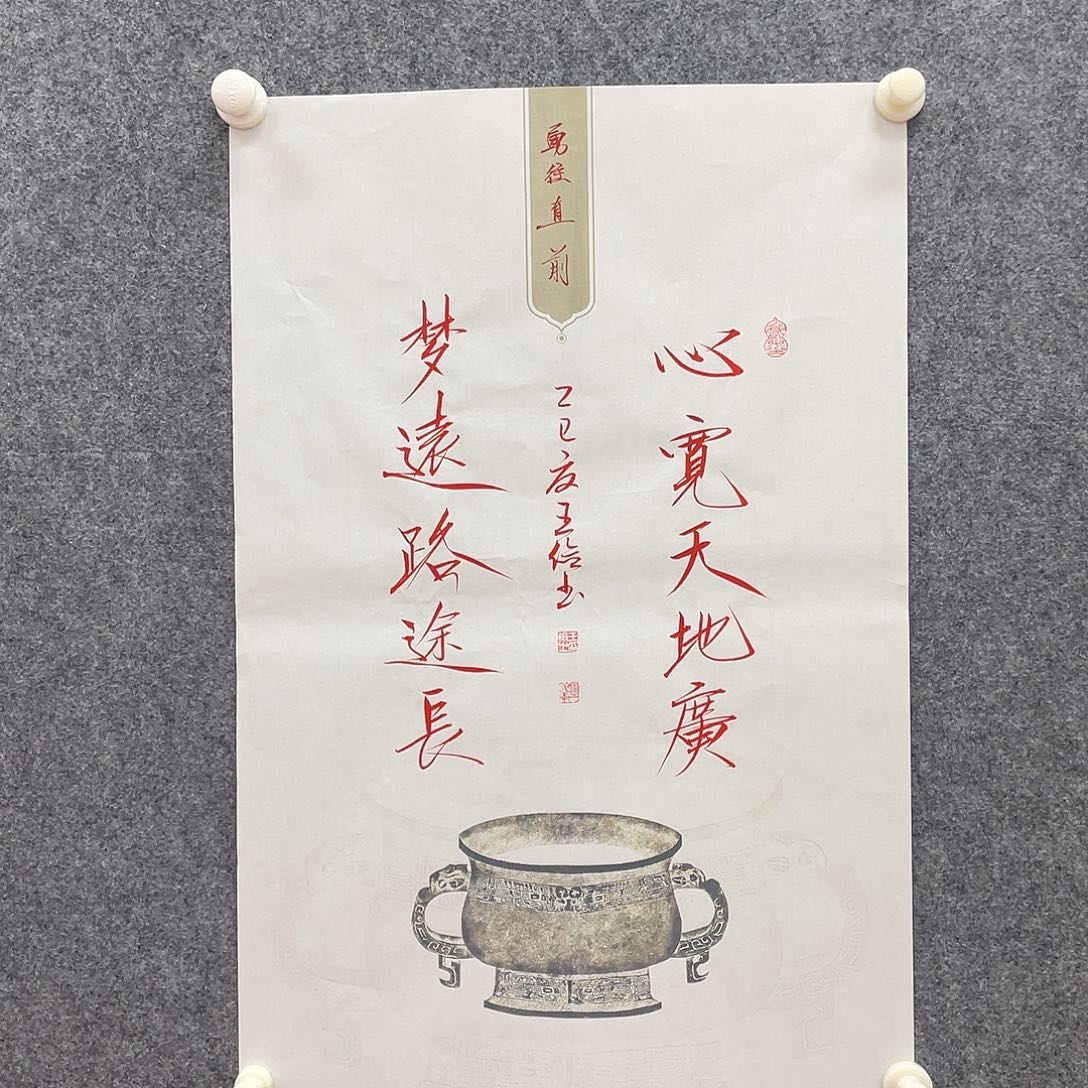 勇往直前
心寬天地廣
梦遠路途長
乙巳夏王俭书